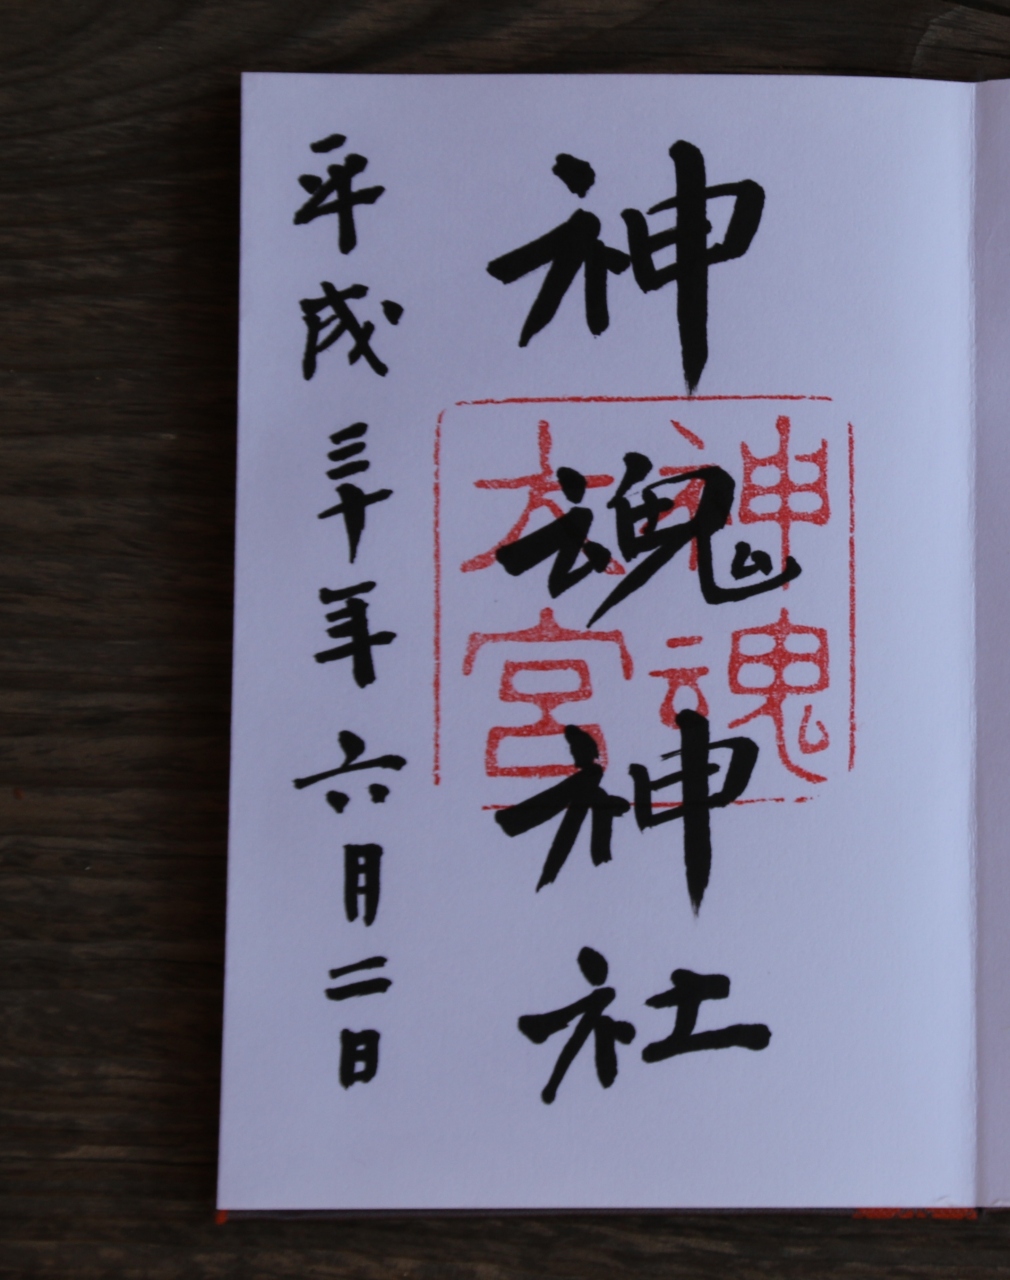 神魂神社
神魂
大宮
平成三十年六月二日